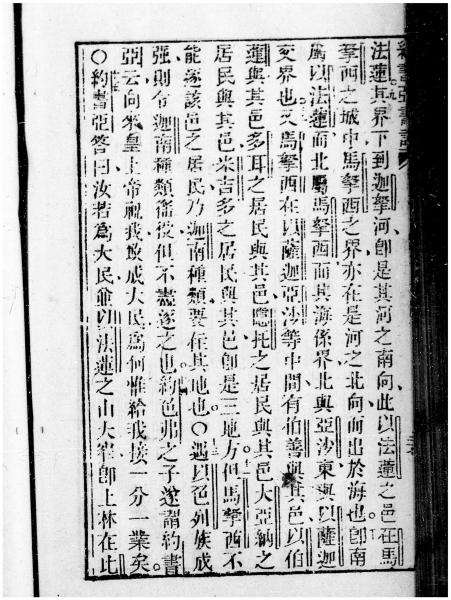 約書亞書記
法蓮其界下到迦拏河卽是其河之南向此以法蓮之邑在馬
拏西之城中馬拏西之界亦在是河之北向而出於海也卽南
屬以法蓮而北屬馬拏西而其海係界北與亞沙東與以薩迦
交界也又馬拏西在以薩迦亞沙等中間有伯善與其邑以伯
蓮與其邑多耳之居民與其邑隱托之居民與其邑大亞納之
居民與其邑米吉多之居民與其邑卽是三地方但馬拏西不
能逐該邑之居民乃迦南種類要在其地也〇遇以色列族成
强則令迦南種類爲役但不盡逐之也約色弗之子遂謂約書
亞云向來皇上帝祝我致成大民爲何惟給我接一分一業矣
〇約書亞答曰汝若爲大民爺以法蓮之山太窄卽上林在比